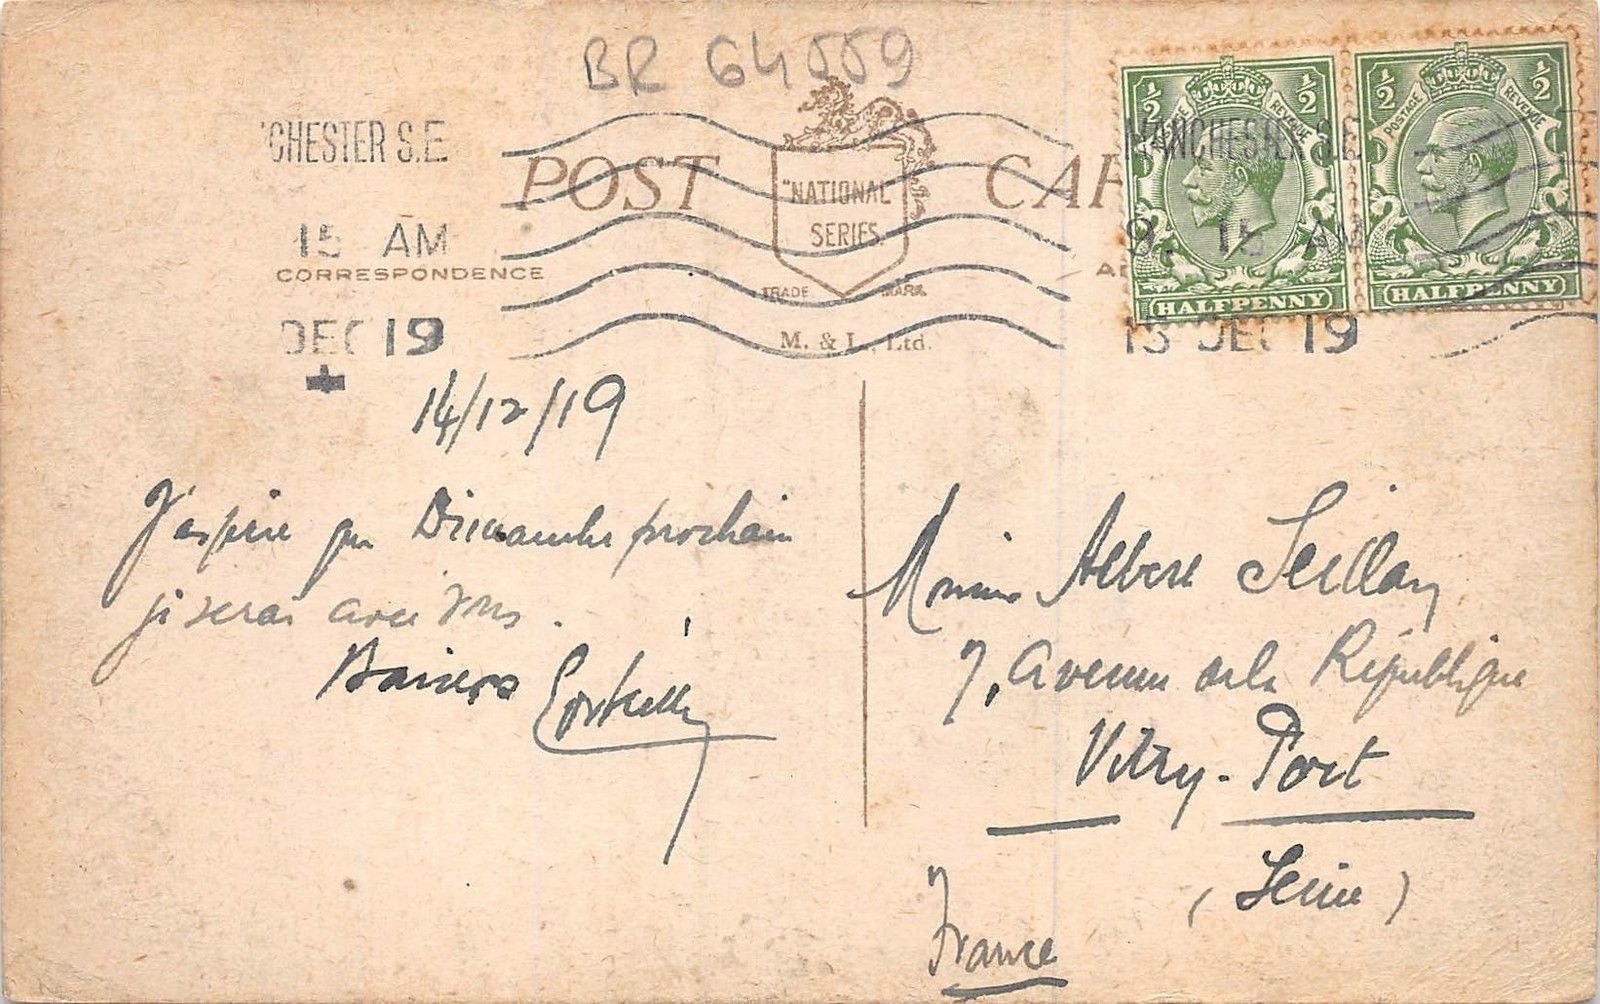 BR 64559
'CHESTER S.E.
15 AM
DEC 19
POST CAR
"NATIONAL"
SERIES.
TRADE MARK
M. & L., Ltd.
CORRESPONDENCE
MANCHESTER S.E
9. 15 AM
15 DEC 19
½ ½
POSTAGE REVENUE
HALFPENNY
½ ½
POSTAGE REVENUE
HALFPENNY
14/12/19
J'espère que Dimanche prochain
je serai avec vous.
Baisers
Albert
7, Avenue de la République
Vitry-Port
(Seine)
France